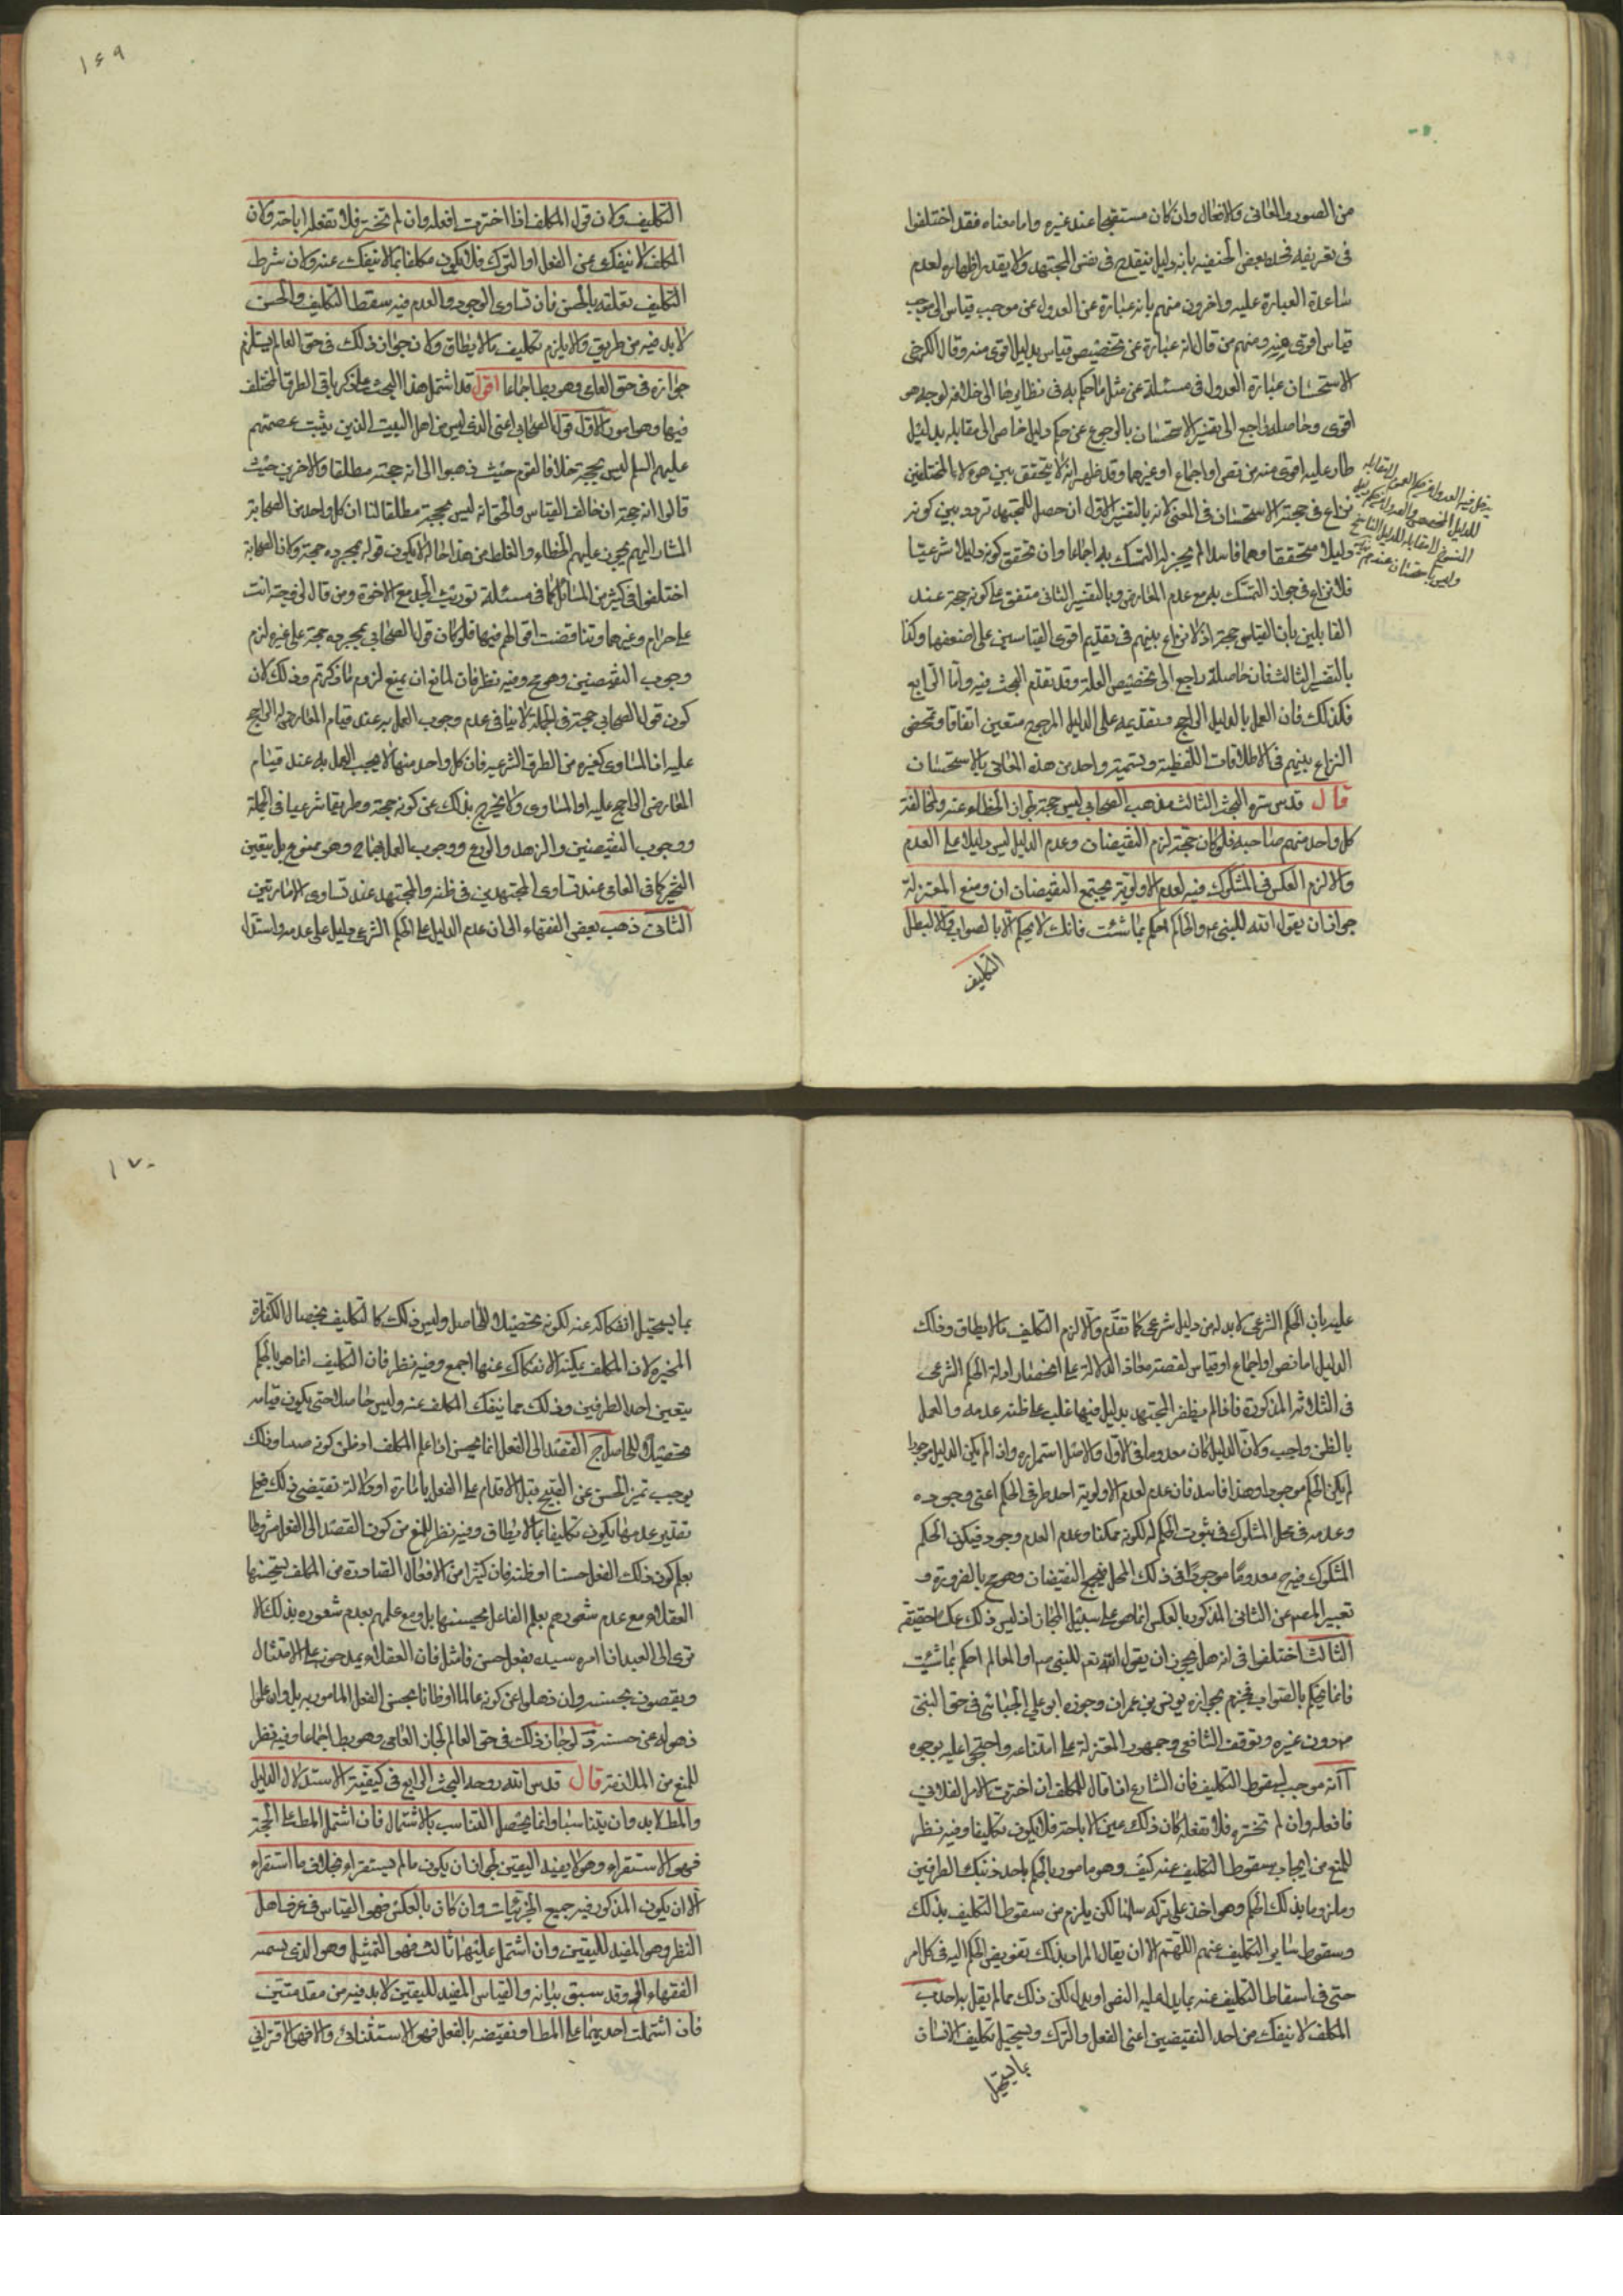 من الصور والمعانى والافعال وان كان مستقبحا عند غيره واما معناه فقد اختلفوا
فى تعريفه فحده بعض الحنفيه بانه دليل ينقدح فى نفس المجتهد ولا يقدر اظهاره لعدم
مساعدة العبارة عليه واخرون منهم بانه عبارة عن العدول عن موجب قياس الى موجب
قياس اقوى منه ومنهم من قال انه عبارة عن تخصيص قياس بدليل اقوى منه وقال الكرخى
الاستحسان عبارة العدول فى مسئلة عن مثل ما حكم به فى نظايرها الى خلافه لوجه هو
اقوى وحاصله راجع الى تفسير الاستحسان بالرجوع عن حكم دليل خاص الى مقابله بدليل
طار عليه اقوى منه من نص او اجماع او غيرهما وقد ظهر انه لا يتحقق بين هؤلاء المختلفين
نزاع فى حجية الاستحسان فى المعنى لانه بالتفسير الاول ان حصل للمجتهد تردد بين كونه
دليلا متحققا وهما فاسدا لم يجز له التمسك به اجماعا وان تحقق كونه دليلا شرعيا
فلا نزاع فى جواز التمسك به مع عدم المعارض وبالتفسير الثانى متفق على كونه حجة عند
القايلين بان القياس حجة اذ لا نزاع بينهم فى تقديم اقوى القياسين على اضعفهما وكذا
بالتفسير الثالث فان حاصله راجع الى تخصيص العلة وقد تقدم البحث فيه واما الرابع
فكذلك فان العمل بالدليل الراجح وتقديمه على الدليل المرجوح متعين اتفاقا وتمحض
النزاع بينهم فى الاطلاقات اللفظية وتسمية واحد من هذه المعانى بالاستحسان
قال قدس سره البحث الثالث مذهب الصحابى ليس حجة لجواز الخطاء عنه ولمخالفة
كل واحد منهم صاحبه فلو كان حجة لزم النقيضان وعدم الدليل ليس دليلا على العدم
والا لزم العكس فى المشكوك فيه لعدم الاولوية فيجتمع النقيضان ومنع المعتزلة
جواز ان يقول الله للنبى ع والحاكم احكم بما شئت فانك لا تحكم الا بالصواب والا لبطل
التكليف
للدليل المخصص
وليس باستحسان عندهم
١٦٩
التكليف ولان قول المكلف اذا اخترت افعله وان لم تختره فلا تفعله اباحة ولان
المكلف لا ينفك عن الفعل او الترك فلا يكون مكلفا بما لا ينفك عنه ولان شرط
التكليف تعلقه بالحسن فان تساوى الوجود والعدم فيه سقط التكليف والحسن
لا بد فيه من طريق والا يلزم تكليف ما لا يطاق ولان جواز ذلك فى حق العالم يستلزم
جوازه فى حق العامى وهو بط اجماعا اقول قد اشتمل هذا البحث على ذكر باقى الطرق المختلف
فيها وهو امور الاول قول الصحابى اعنى الذى ليس من اهل البيت الذين يثبت عصمتهم
عليهم السلم ليس بحجة خلافا لقوم حيث ذهبوا الى انه حجة مطلقا والاخرين حيث
قالوا انه حجة ان خالف القياس والحق انه ليس بحجة مطلقا لنا ان كل واحد من الصحابة
المشار اليهم يجوز عليهم الخطاء والغلط ومن هذا حاله لا يكون قوله بمجرده حجة وكان الصحابة
اختلفوا فى كثير من المسائل كما فى مسئلة توريث الجد مع الاخوة ومن قال لزوجته انت
على حرام وغيرهما وتناقضت اقوالهم فيها فلو كان قول الصحابى بمجرده حجة على غيره لزم
وجوب النقيضين وهو مح وفيه نظر فان لمانع ان يمنع لزوم ما ذكرتم وذلك لان
كون قول الصحابى حجة فى الجملة لا ينافى عدم وجوب العمل به عند قيام المعارض له الراجح
عليه او المساوى كغيره من الطرق الشرعية فان كل واحد منها لا يجب العمل به عند قيام
المعارض الراجح عليه او المساوى ولا يخرج بذلك عن كونه حجة وطريقا شرعيا فى الجملة
ووجوب النقيضين والزهد والورع ووجوب العمل بهما وهو ممنوع بل يتعين
التخير كما فى العامى عند تساوى المجتهدين فى ظنه والمجتهد عند تساوى الامارتين
الثانى ذهب بعض الفقهاء الى ان عدم الدليل على الحكم الشرعى دليل على عدمه واستدل
عليه بان الحكم الشرعى لا بد له من دليل شرعى كما تقدم والا لزم التكليف ما لا يطاق وذلك
الدليل اما نص او اجماع او قياس لقصة معاذ الدالة على انحصار ادلة الحكم الشرعى
فى الثلاثة المذكورة فاذا لم يظفر المجتهد بدليل فيها غلب على ظنه عدمه والعمل
بالظن واجب ولان الدليل كان معدوما فى الاول والاصل استمراره واذا لم يكن الدليل موجودا
لم يكن الحكم موجودا وهذا فاسد فان عدم لعدم الاولوية احد طرفى الحكم اعنى وجوده
وعدمه فى محل المشكوك فى ثبوت الحكم له لكونه ممكنا وعدم العدم وجود فيكون الحكم
المشكوك فيه ح معدوما موجودا فى ذلك المحل فيجتمع النقيضان وهو مح بالضرورة و
تعبير المصر عن الثانى المذكور بالعكس انما هو على سبيل المجاز اذ ليس ذلك عكسا حقيقة
الثالث اختلفوا فى انه هل يجوز ان يقول الله تع للنبى ص او العالم احكم بما شئت
فانما تحكم بالصواب فجزم بجوازه يونس بن عمران وجوزه ابو على الجبائى فى حق النبى
ص دون غيره وتوقف الشافعى وجمهور المعتزلة على امتناعه واحتجوا عليه بوجوه
ا انه موجب لسقوط التكليف فان الشارع اذا قال للمكلف ان اخترت الامر الفلانى
فافعله وان لم تختره فلا تفعله كان ذلك عين الاباحة فلا يكون تكليفا وفيه نظر
للمنع من ايجاب سقوط التكليف عنه كيف وهو مامور بالحكم باحد ذينك الطرفين
وملزوما بذلك الحكم وهو اخذ على تركه سلمنا لكن يلزم من سقوط التكليف بذلك
وسقوط ساير التكليف عنهم اللهم الا ان يقال المراد بذلك تفويض الحكم اليه فى كل امر
حتى فى اسقاط التكليف عنه بما يدل عليه النص او بدله لكن ذلك مما لم يقل به احد ب
المكلف لا ينفك من احد النقيضين اعنى الفعل والترك ويستحيل تكليف الانسان
بما يستحيل
١٧٠
بما يستحيل انفكاكه عنه لكونه تحصيلا للحاصل وليس ذلك كالتكليف بخصال الكفارة
المخيرة لان المكلف يمكنه الانفكاك عنها اجمع وفيه نظر فان التكليف انما هو بالحكم
بتعين احد الطرفين وذلك مما ينفك المكلف عنه وليس حاصلا حتى يكون قيامه
تحصيلا للحاصل ج القصد الى الفعل انما يحسن اذا علم المكلف او ظن كونه حسنا وذلك
يوجب تميز الحسن عن القبيح قبل الاقدام على الفعل بامارة او دلالة تقتضى ذلك فعلى
تقدير عدمها يكون تكليفا بما لا يطاق وفيه نظر للمنع من كون القصد الى الفعل مشروطا
بعلم كون ذلك الفعل حسنا او ظنه فان كثيرا من الافعال الصادرة من المكلف يستحسنها
العقلاء مع عدم شعورهم بعلم الفاعل بحسنها بل ومع علمهم بعدم شعوره بذلك الا
ترى الى العبد اذا امره سيده بفعل حسن فامتثل فان العقلاء يمدحونه على الامتثال
ويقضون بحسنه وان ذهلوا عن كونه عالما او ظانا بحسن الفعل المامور به بل وان علموا
ذهوله عن حسنه د لو جاز ذلك فى حق العالم لجاز العامى وهو بط اجماعا وفيه نظر
للمنع من الملازمة قال قدس الله روحه البحث الرابع فى كيفية الاستدلال الدليل
والمط لا بد وان يتناسبا وانما يحصل التناسب بالاشتمال فان اشتمل المط على الحجة
فهو الاستقراء وهو لا يفيد اليقين لجواز ان يكون ما لم يستقراء بخلاف ما استقراء
الا ان يكون المذكور فيه جميع الجزئيات وان كان بالعكس فهو القياس فى عرف اهل
النظر وهو المفيد لليقين وان اشتمل عليهما ثالث فهو التمثيل وهو الذى يسميه
الفقهاء الق وقد سبق بيانه والقياس المفيد لليقين لا بد فيه من مقدمتين
فان اشتملت احديهما على المط او نقيضه بالفعل فهو الاستثنائى والا فهو الاقترانى